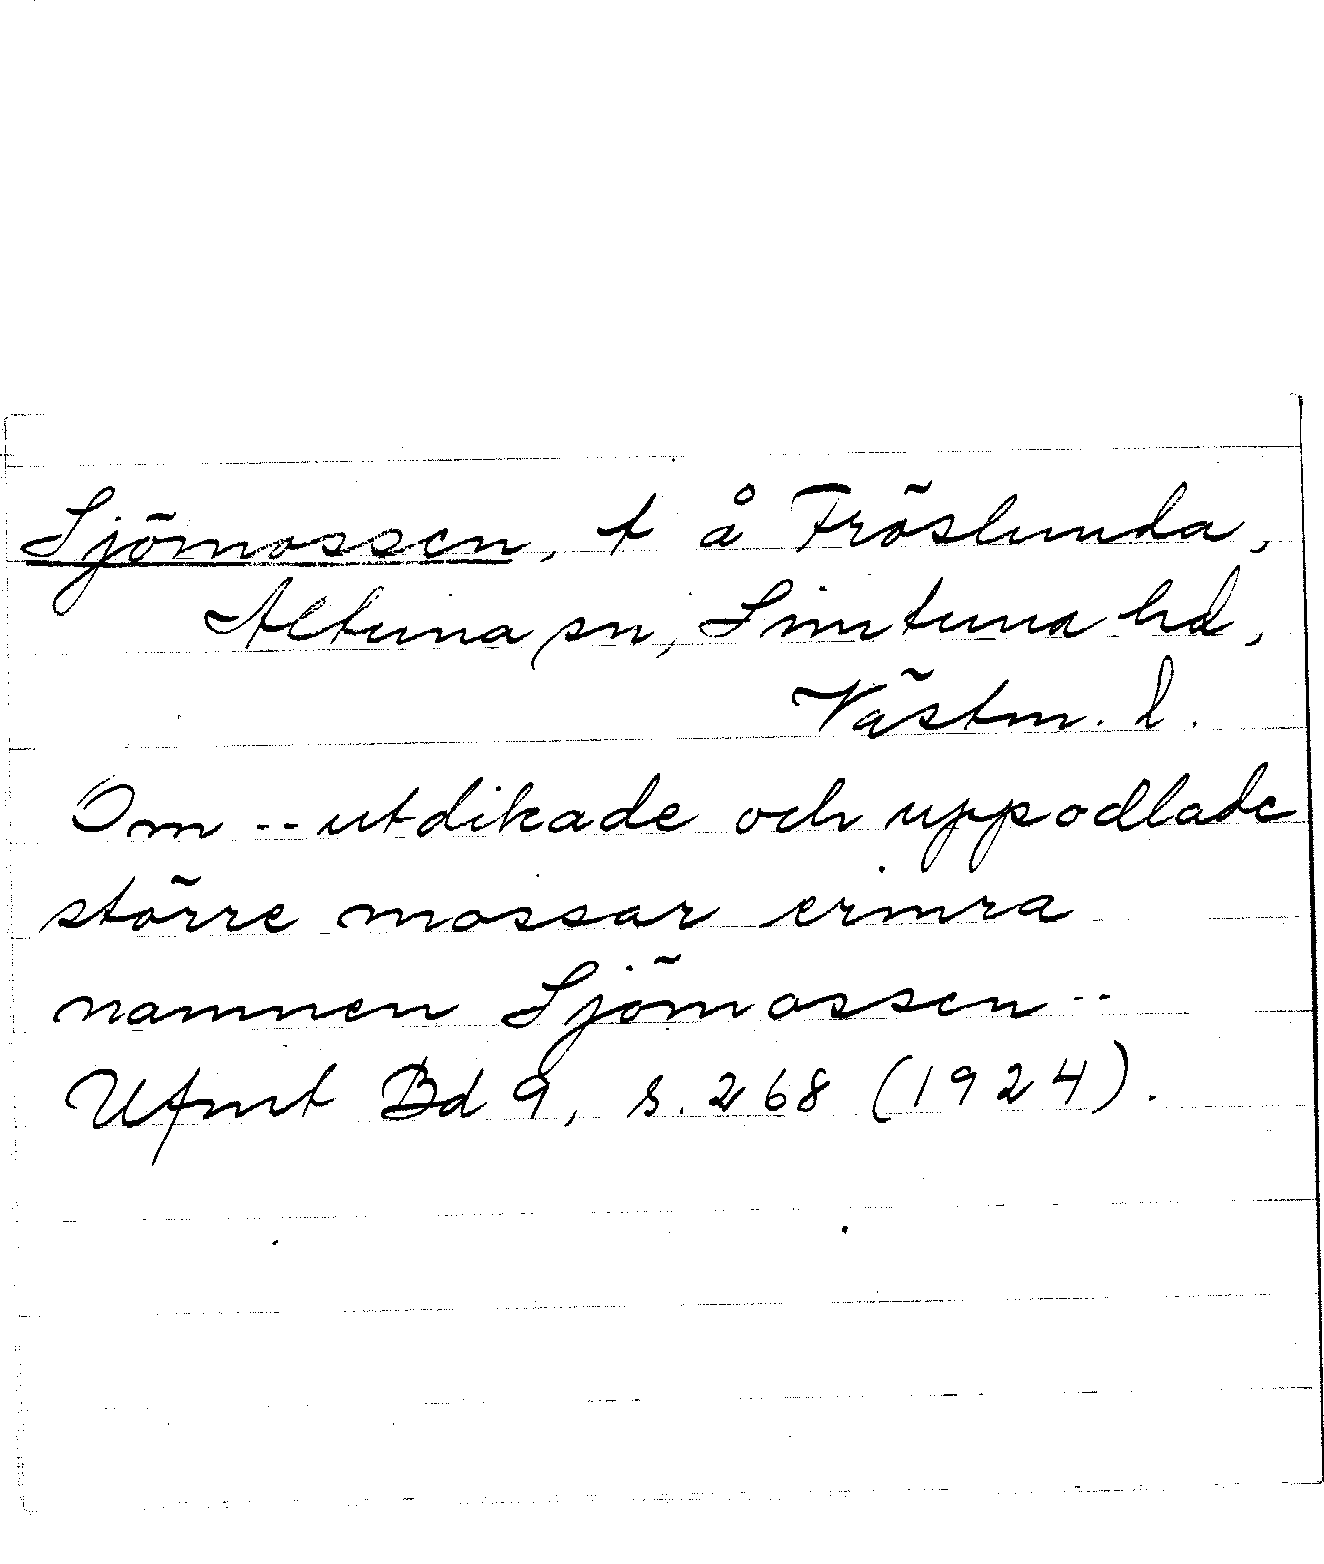 Sjömossen, t å Fröslunda,
Altuna sn, Simtuna hd,
Västm. l.
Om -- utdikade och uppodlade
större mossar erinra
namnen Sjömossen --
Ufmt Bd 9, s. 268 (1924).